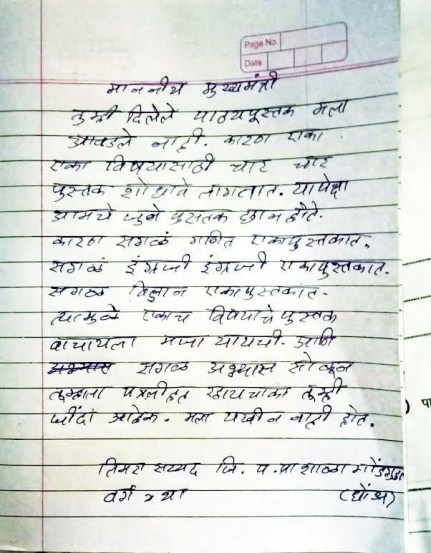 Page No.
Date
माननीय मुख्यमंत्री
तुम्ही दिलेले पाठ्यपुस्तक मला
आवडले नाही. कारण एका
एका विषयासाठी चार चार
पुस्तक शोधावे लागतात. यापेक्षा
आमचे जुने पुस्तक छान होते.
कारण सगळं गणित एकापुस्तकात.
सगळं इंग्रजी इंग्रजी एकापुस्तकात.
सगळ विज्ञान एकापुस्तकात.
त्यामुळे एकाच विषयाचे पुस्तक
वाचायला मजा यायची. आणि
अभ्यास सगळ अभ्यास सोडून
तुम्हाला पत्र लिहित
आहेत. मला नाही होत.
सय्यद जि. प. प्रा शाळा
वर्ग ४ था